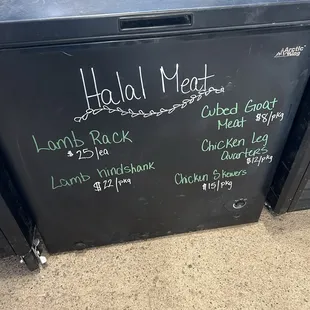 Arctic
King
Halal Meat
Lamb Rack
$25/ea
Lamb hindshank
$22/pkg
Cubed Goat
Meat $8/pkg
Chicken Leg
Quarters
$12/pkg
Chicken Skewers
$15/pkg